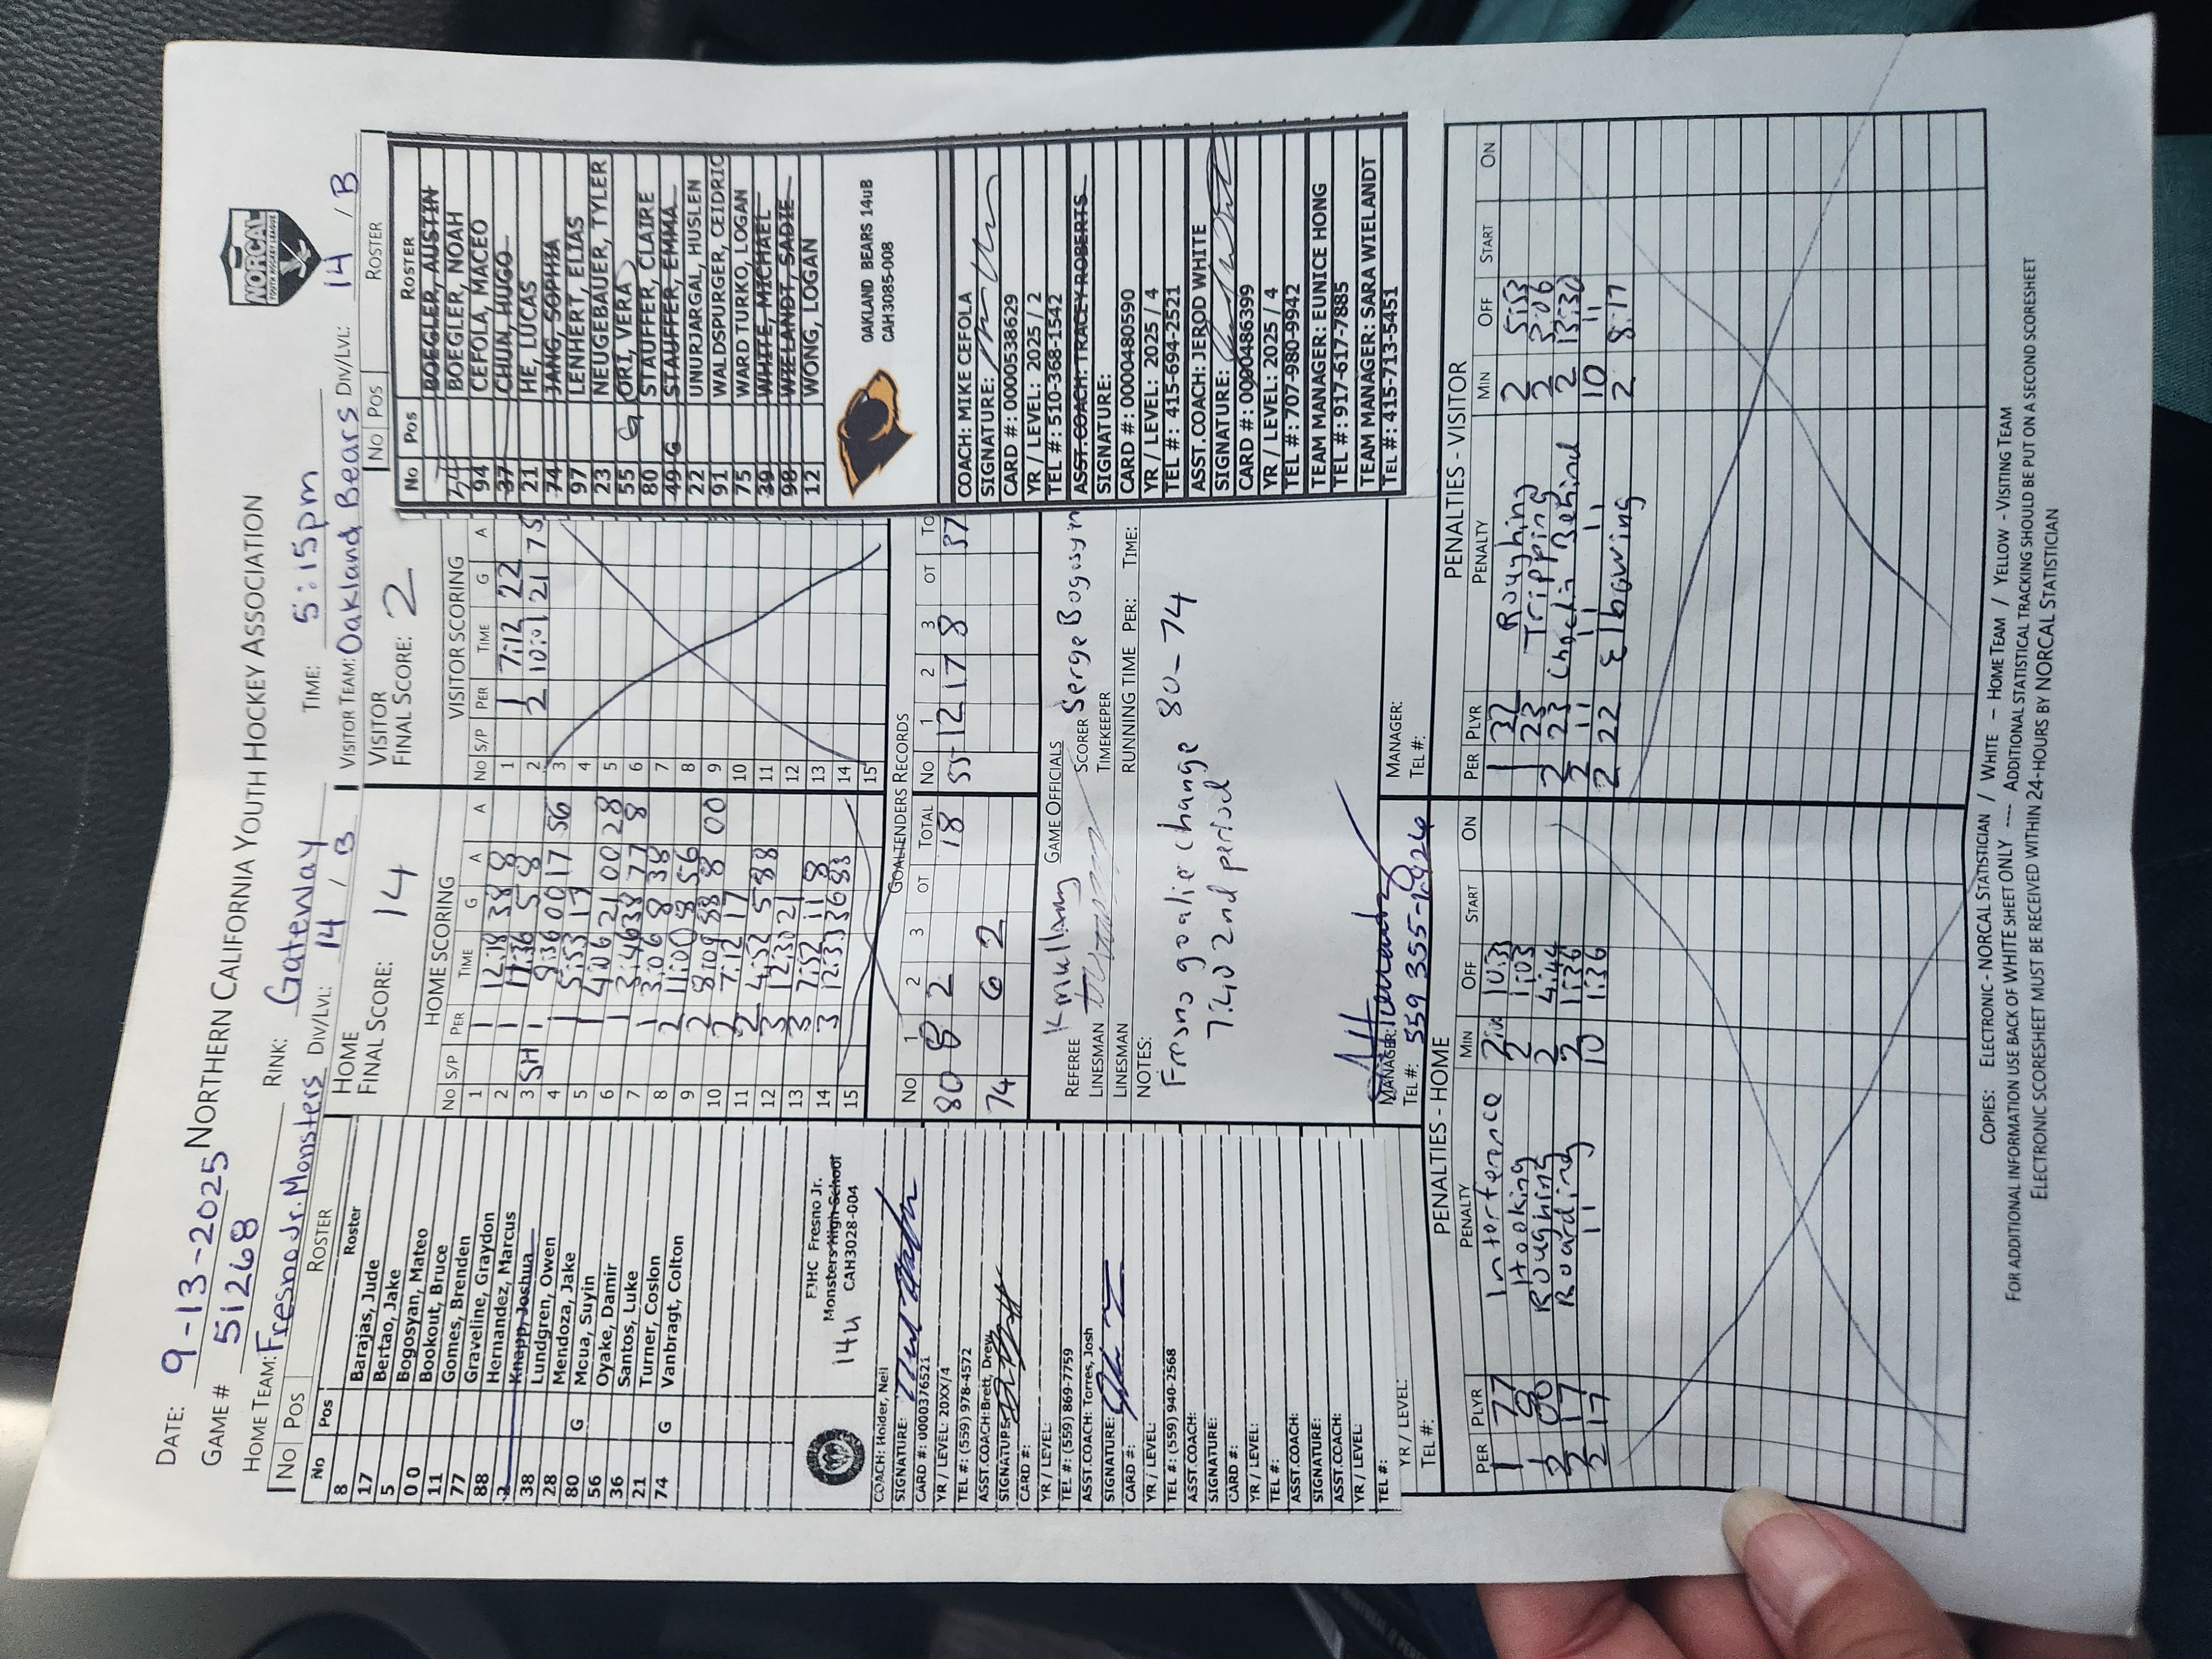 DATE: 9-13-2025
NORTHERN CALIFORNIA YOUTH HOCKEY ASSOCIATION
NORCAL
YOUTH HOCKEY LEAGUE
GAME # 51268
RINK: Gateway
TIME: 5:15pm
HOME TEAM: Fresno Jr. Monsters DIV/LVL: 14 / B
VISITOR TEAM: Oakland Bears DIV/LVL: 14 / B
NO POS ROSTER
HOME
FINAL SCORE: 14
VISITOR
FINAL SCORE: 2
NO POS ROSTER
No Pos Roster
8 Barajas, Jude
17 Bertao, Jake
5 Bogosyan, Mateo
00 Bookout, Bruce
11 Gomes, Brenden
77 Graveline, Graydon
88 Hernandez, Marcus
2 Knapp, Joshua
38 Lundgren, Owen
28 Mendoza, Jake
80 G Mcua, Suyin
56 Oyake, Damir
36 Santos, Luke
21 Turner, Coslon
74 G Vanbragt, Colton
FJHC Fresno Jr.
Monsters High School
14u CAH3028-004
COACH: Holder, Neil
SIGNATURE:
CARD #: 0000376521
YR / LEVEL: 20XX/4
TEL #: (559) 978-4572
ASST.COACH: Brett, Drew
SIGNATURE:
CARD #:
YR / LEVEL:
TEL #: (559) 869-7759
ASST.COACH: Torres, Josh
SIGNATURE:
CARD #:
YR / LEVEL:
TEL #: (559) 940-2568
ASST.COACH:
SIGNATURE:
CARD #:
YR / LEVEL:
TEL #:
ASST.COACH:
SIGNATURE:
YR / LEVEL:
TEL #:
YR / LEVEL:
TEL #:
HOME SCORING
NO S/P PER TIME G A A
1 1 12:18 38 8
2 1 11:36 5 8
3 SH 1 9:36 00 17 56
4 1 5:53 17
5 1 4:06 21 00 28
6 1 3:46 38 77 8
7 1 3:06 8 38
8 2 11:00 8 56
9 2 8:09 88 8 00
10 2 7:12 17
11 2 4:52 5 88
12 3 12:30 21
13 3 7:52 11 8
14 3 12:33 36 88
15
VISITOR SCORING
NO S/P PER TIME G A
1 1 7:12 22
2 2 10:01 21 75
3
4
5
6
7
8
9
10
11
12
13
14
15
GOALTENDERS RECORDS
NO 1 2 3 OT TOTAL
80 8 2 18
74 6 2
NO 1 2 3 OT TO
55 12 17 8 37
GAME OFFICIALS
REFEREE K mullany
SCORER Serge Bogosyan
LINESMAN
TIMEKEEPER
LINESMAN
RUNNING TIME PER: TIME:
NOTES:
Fresno goalie change 80-74
7:40 2nd period
MANAGER: AHernandez
TEL #: 559 355-1926
MANAGER:
TEL #:
No Pos ROSTER
BOEGLER, AUSTIN
BOEGLER, NOAH
94 CEFOLA, MACEO
37 CHUN, HUGO
21 HE, LUCAS
74 JANG, SOPHIA
97 LENHERT, ELIAS
23 NEUGEBAUER, TYLER
55 G ORI, VERA
80 STAUFFER, CLAIRE
49 G STAUFFER, EMMA
22 UNURJARGAL, HUSLEN
91 WALDSPURGER, CEIDRIC
75 WARD TURKO, LOGAN
39 WHITE, MICHAEL
98 WIELANDT, SADIE
12 WONG, LOGAN
OAKLAND BEARS 14uB
CAH3085-008
COACH: MIKE CEFOLA
SIGNATURE:
CARD #: 0000538629
YR / LEVEL: 2025 / 2
TEL #: 510-368-1542
ASST.COACH: TRACEY ROBERTS
SIGNATURE:
CARD #: 0000480590
YR / LEVEL: 2025 / 4
TEL #: 415-694-2521
ASST.COACH: JEROD WHITE
SIGNATURE:
CARD #: 0000486399
YR / LEVEL: 2025 / 4
TEL #: 707-980-9942
TEAM MANAGER: EUNICE HONG
TEL #: 917-617-7885
TEAM MANAGER: SARA WIELANDT
TEL #: 415-713-5451
PENALTIES - HOME
PER PLYR PENALTY MIN OFF START ON
1 77 Interference 2 10:31
2 8 Hooking 2 1:03
2 00 Roughing 2 4:44
2 17 Boarding 2 1:36
2 17 11 10 1:36
PENALTIES - VISITOR
PER PLYR PENALTY MIN OFF START ON
1 37 Roughing 2 5:53
2 23 Tripping 2 3:06
2 23 Check in Behind 2 13:30
2 11 11 11 10 11
2 22 Elbowing 2 8:17
COPIES: ELECTRONIC - NORCAL STATISTICIAN / WHITE - HOME TEAM / YELLOW - VISITING TEAM
FOR ADDITIONAL INFORMATION USE BACK OF WHITE SHEET ONLY ---- ADDITIONAL STATISTICAL TRACKING SHOULD BE PUT ON A SECOND SCORESHEET
ELECTRONIC SCORESHEET MUST BE RECEIVED WITHIN 24-HOURS BY NORCAL STATISTICIAN